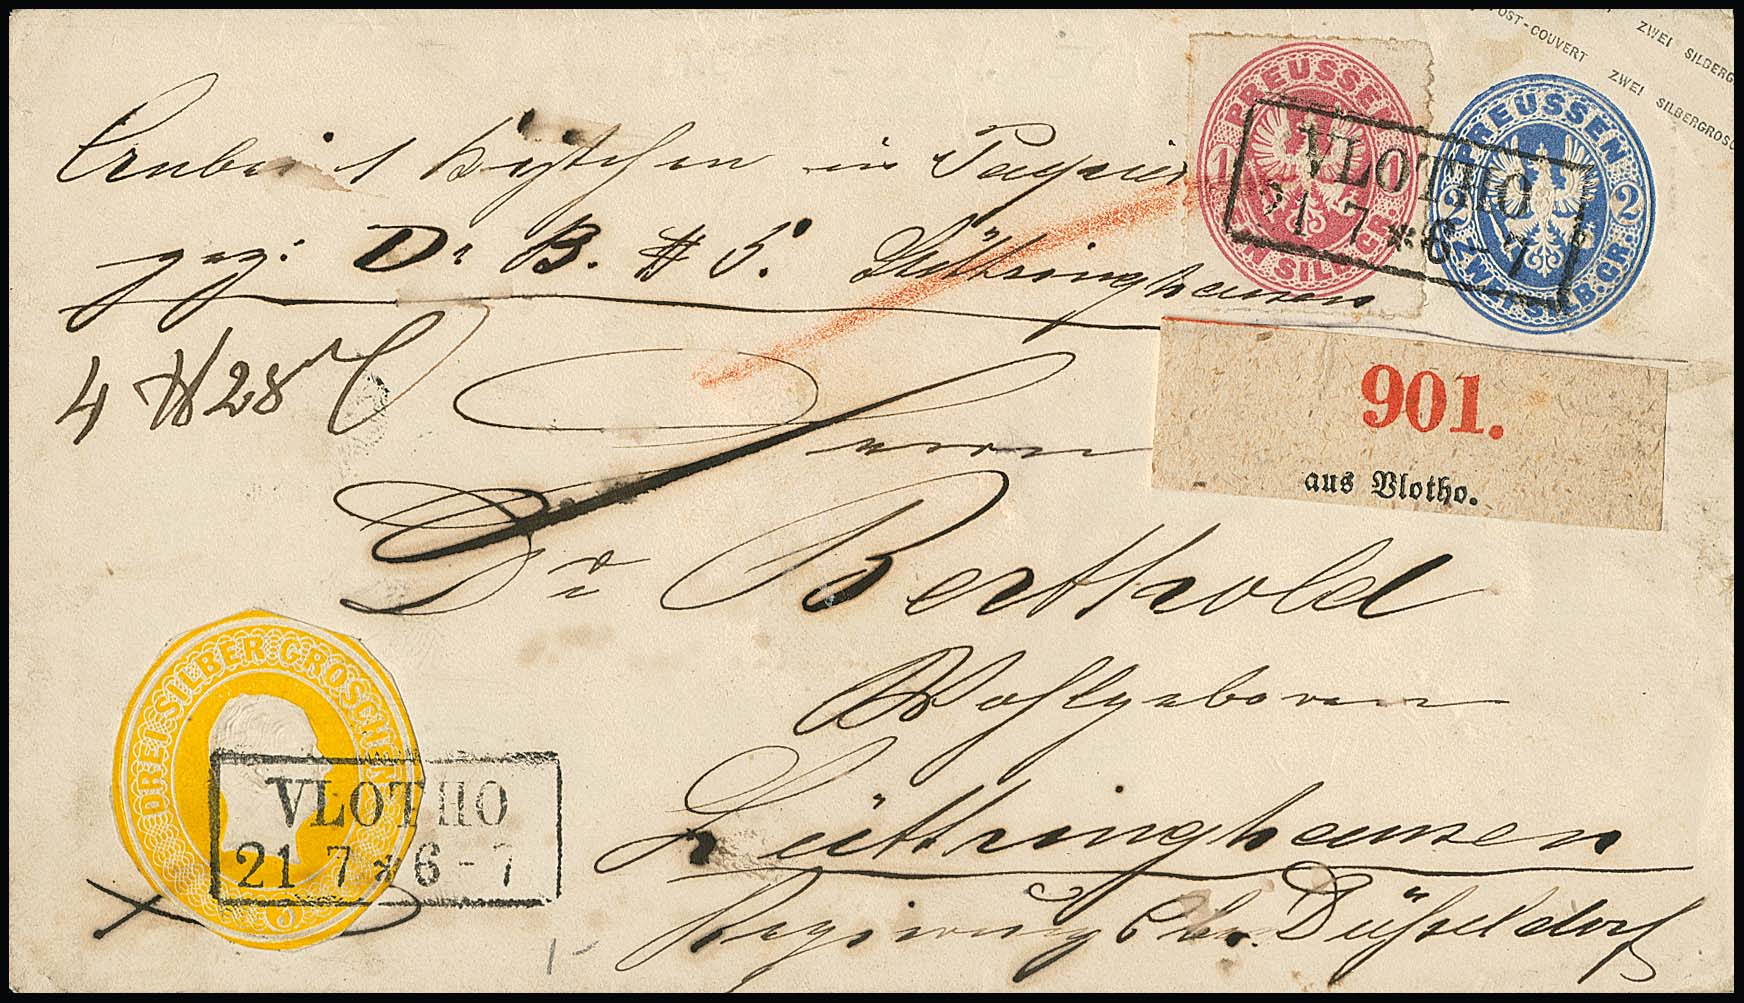 POST-COUVERT ZWEI SILBERGROSC
ZWEI SILBERG
PREUSSEN
1 1
EIN SILB. GR.
PREUSSEN
2 2
ZWEI SILB. GR.
VLOTHO
21 7 * 6 - 7
in Papier
gez: Dr B. # 5. Lüttringhausen
4 28
901.
aus Vlotho.
Herrn
Dr Berthold
Wohlgeboren
Lüttringhausen
Regierungs Bez. Düsseldorf
DREI SILBERGROSCHEN
3
VLOTHO
21 7 * 6 - 7